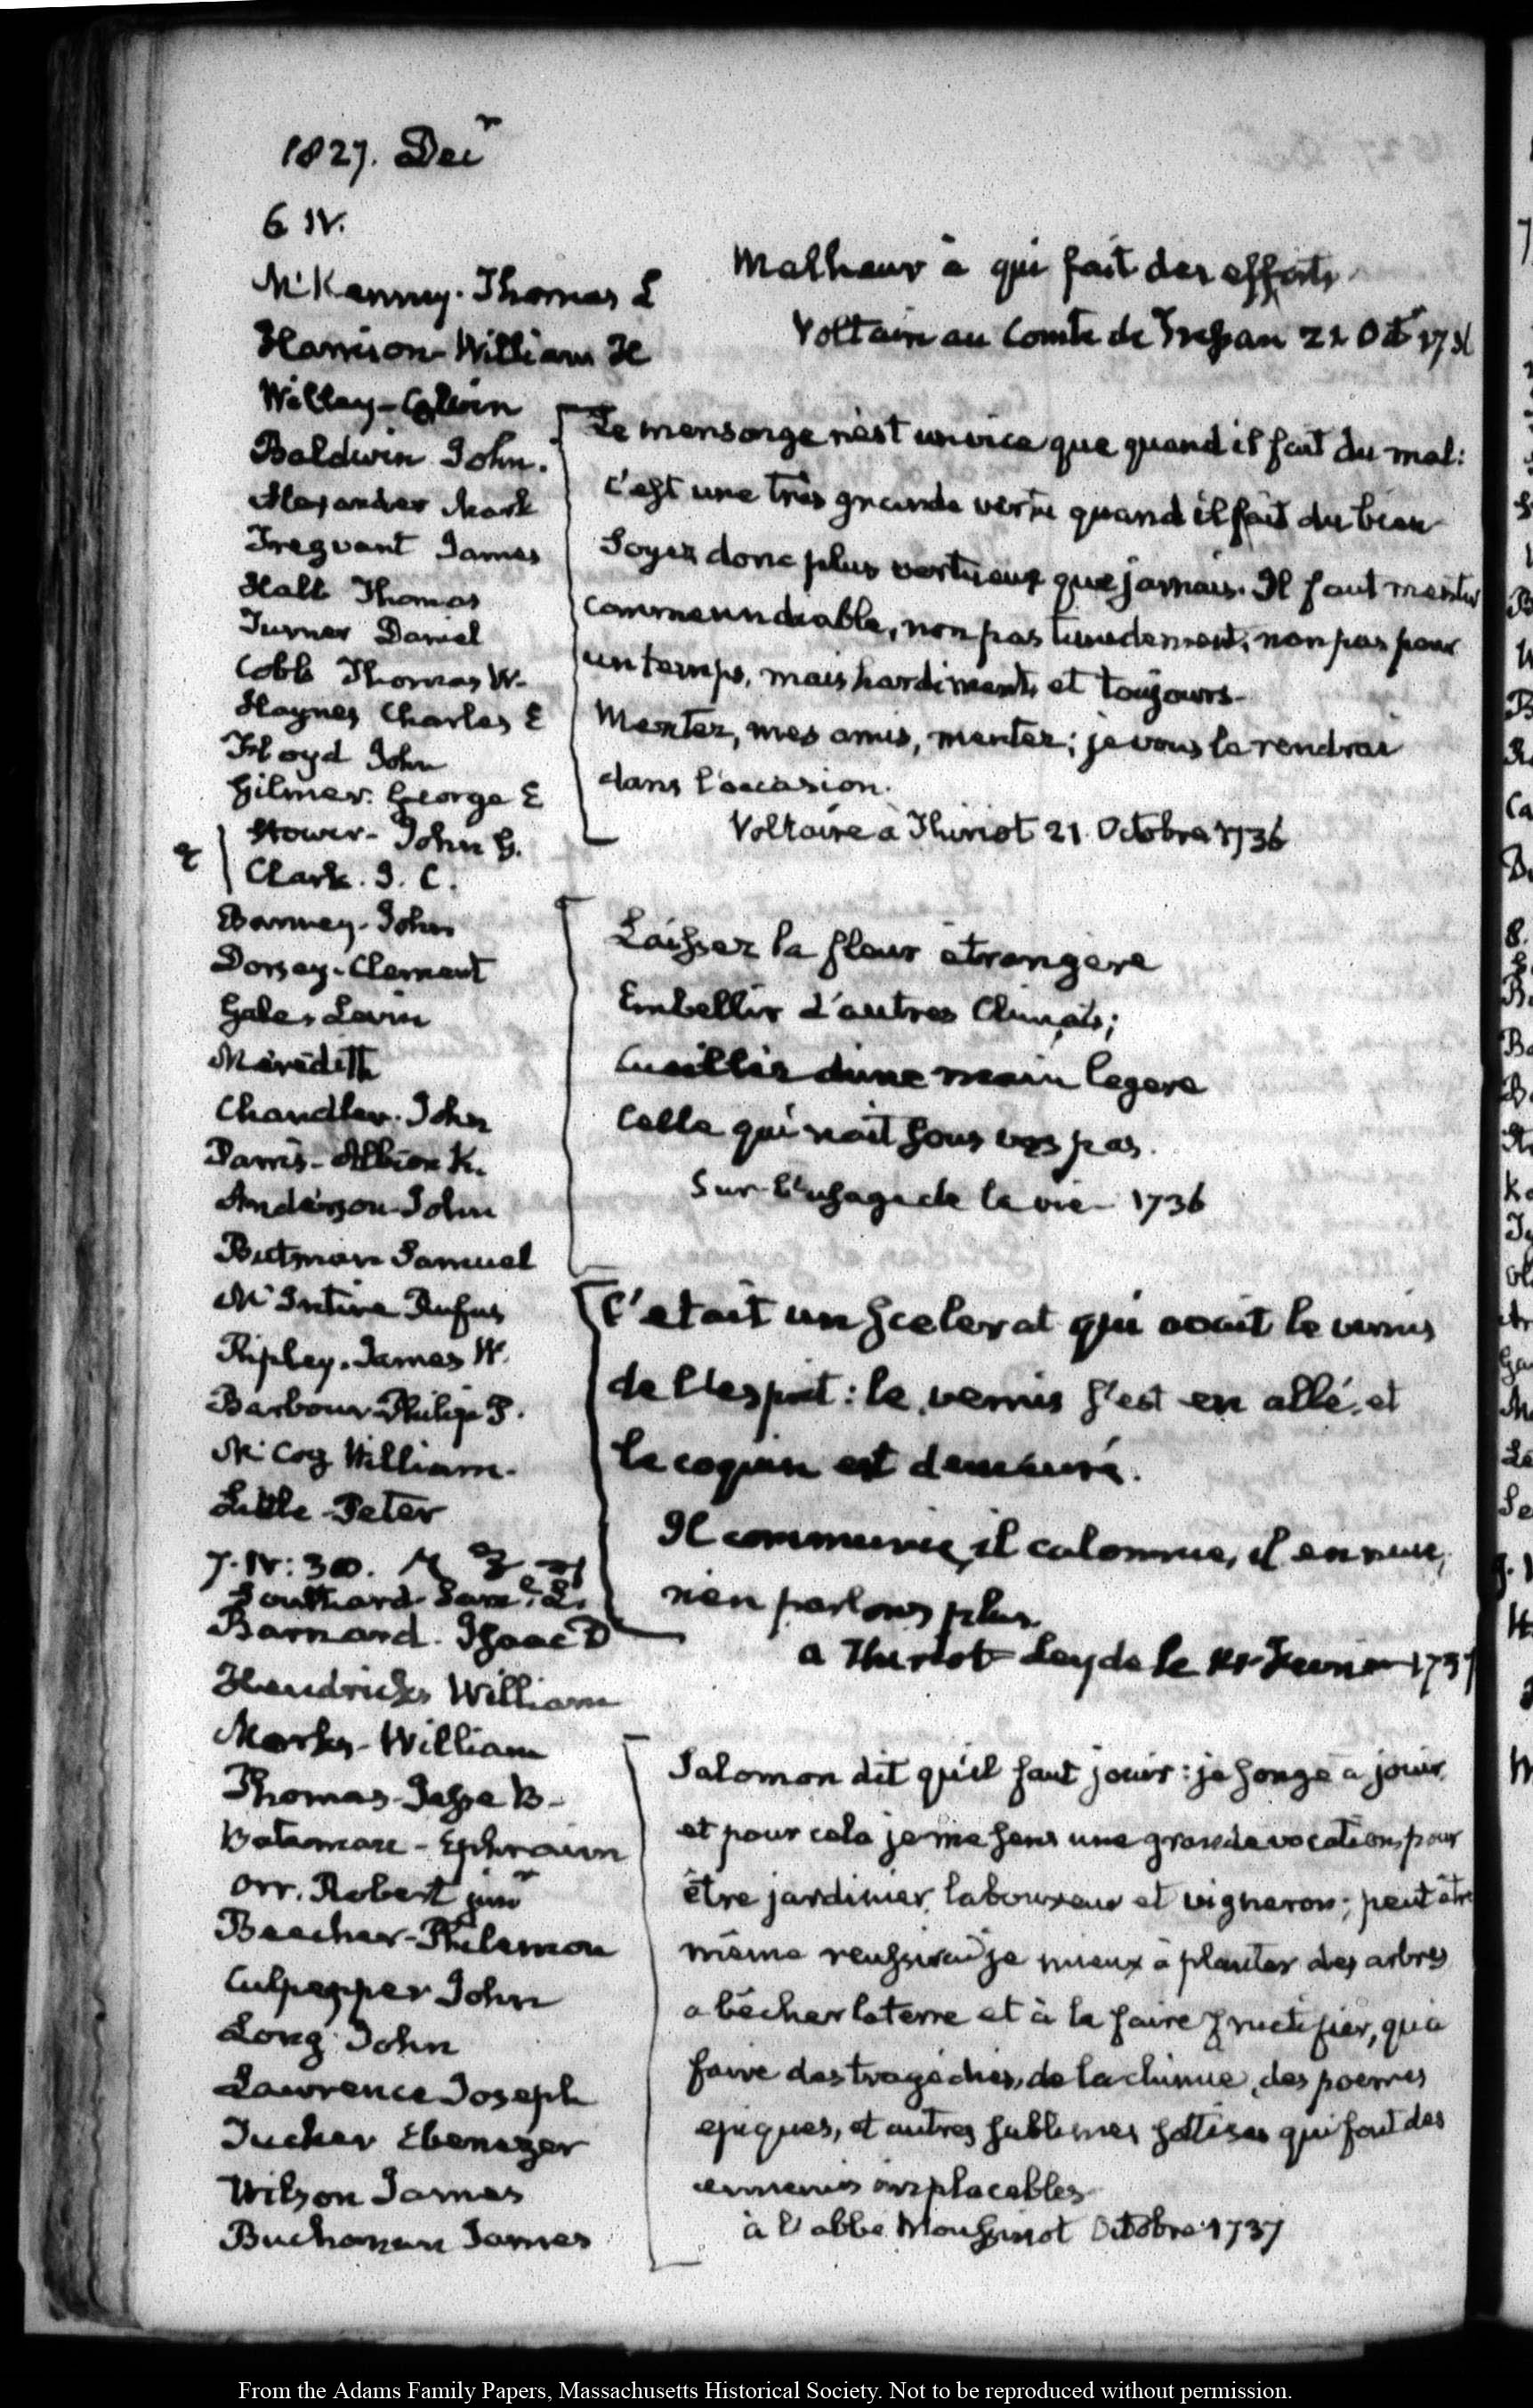 1827. Decr
6 IV.
McKenney. Thomas L
Harrison - William H
Willey - Calvin
Baldwin John.
Alexander Mark
Trezvant James
Hall Thomas
Turner Daniel
Cobb Thomas W.
Haynes Charles E
Floyd John
Gilmer. George E
2 Stower - John G.
Clark. J. C.
Barney - John
Dorsey - Clement
Gale, Levin
Meredith
Chandler. John
Parris - Albion K.
Anderson John
Butman Samuel
McIntire Rufus
Ripley. James W.
Barbour Philip P.
McCoy William.
Little - Peter
7. IV: 30.
Southard Saml. L.
Barnard. Isaac D
Hendricks William
Marks - William
Thomas - Jesse B -
Bateman - Ephraim
Orr. Robert junr
Beecher - Philemon
Culpepper John
Long John
Lawrence Joseph
Tucker Ebenezer
Wilson James
Buchanan James
Malheur à qui fait des efforts
Voltaire au Comte de Tressan 21 Octr 1736
Le mensonge n'est un vice que quand il fait du mal:
c'est une très grande vertu quand il fait du bien
Soyez donc plus vertueux que jamais. Il faut mentir
comme un diable, non pas timidement, non pas pour
un temps, mais hardiment, et toujours -
Mentez, mes amis, mentez; je vous le rendrai
dans l'occasion.
Voltaire à Thiriot 21. Octobre 1736
Laissez la fleur etrangere
Embellir d'autres Climats;
Cueillez d'une main legere
Celle qui nait sous vos pas.
Sur l'usage de la vie - 1736
C'etait un scelerat qui avait le vernis
de l'esprit: le vernis s'est en allé, et
le coquin est demeuré.
Il communie, il calomnie, il ennuie,
n'en parlons plus.
a Thiriot Leyde le Fevrier 1737
Salomon dit qu'il faut jouir: je songe a jouir
et pour cela je me sens une grande vocation pour
être jardinier, laboureur et vigneron; peut être
même reussirai je mieux à planter des arbres
a bêcher la terre et à la faire fructifier, qu'a
faire des tragedies, de la chimie, des poemes
epiques, et autres sublimes sottises qui font des
ennemis implacables
à l'abbé Moussinot Octobre 1737
From the Adams Family Papers, Massachusetts Historical Society. Not to be reproduced without permission.